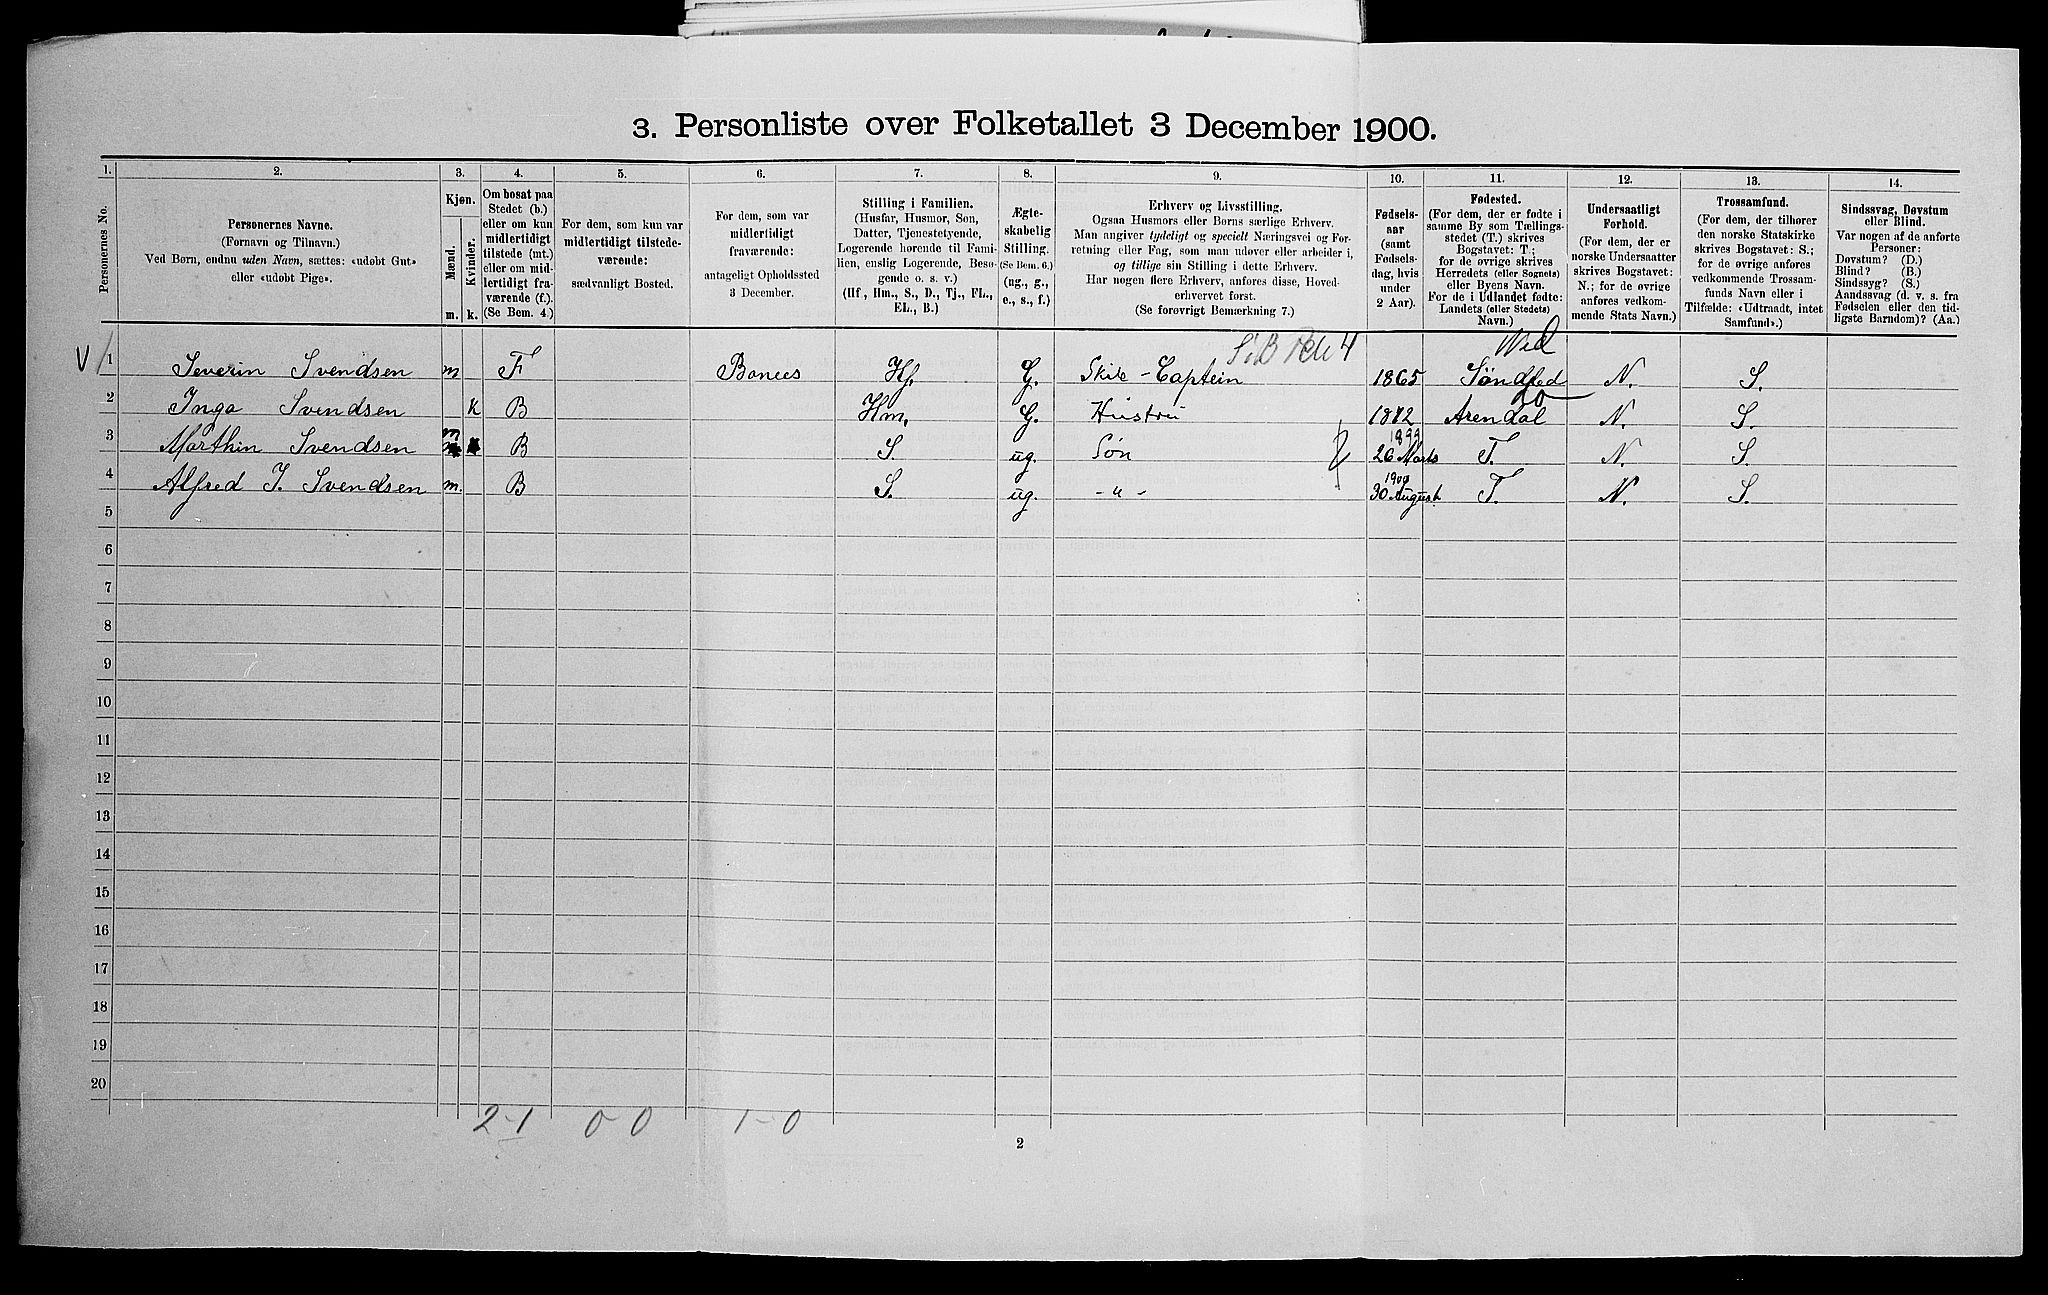 3. Personliste over Folketallet 3 December 1900.
1. 2. 3. 4. 5. 6. 7. 8. 9. 10. 11. 12. 13. 14.
Personernes No.
Personernes Navne.
(Fornavn og Tilnavn.)
Ved Børn, endnu uden Navn, sættes: «udøbt Gut»
eller «udøbt Pige».
Kjøn.
Mænd.
Kvinder.
m. k.
Om bosat paa
Stedet (b.)
eller om kun
midlertidigt
tilstede (mt.)
eller om mid-
lertidigt fra-
værende (f.).
(Se Bem. 4.)
For dem, som kun var
midlertidigt tilstede-
værende:
sædvanligt Bosted.
For dem, som var
midlertidigt
fraværende:
antageligt Opholdssted
3 December.
Stilling i Familien.
(Husfar, Husmor, Søn,
Datter, Tjenestetyende,
Logerende hørende til Fami-
lien, enslig Logerende, Besø-
gende o. s. v.)
(Hf., Hm., S., D., Tj., FL.,
EL., B.)
Ægte-
skabelig
Stilling.
(Se Bem. 6.)
(ug., g.,
e., s., f.)
Erhverv og Livsstilling.
Ogsaa Husmors eller Børns særlige Erhverv.
Man angiver tydeligt og specielt Næringsvei og For-
retning eller Fag, som man udøver eller arbeider i,
og tillige sin Stilling i dette Erhverv.
Har nogen flere Erhverv, anføres disse, Hoved-
erhvervet først.
(Se forøvrigt Bemærkning 7.)
Fødsels-
aar
(samt
Fødsels-
dag, hvis
under
2 Aar).
Fødested.
(For dem, der er fødte i
samme By som Tællings-
stedet (T.) skrives
Bogstavet: T.;
for de øvrige skrives
Herredets (eller Sognets)
eller Byens Navn.
For de i Udlandet fødte:
Landets (eller Stedets)
Navn.)
Undersaatligt
Forhold.
(For dem, der er
norske Undersaatter
skrives Bogstavet:
N.; for de øvrige
anføres vedkom-
mende Stats Navn.)
Trossamfund.
(For dem, der tilhører
den norske Statskirke
skrives Bogstavet: S.;
for de øvrige anføres
vedkommende Trossam-
funds Navn eller i
Tilfælde: «Udtraadt, intet
Samfund».)
Sindssvag, Døvstum
eller Blind.
Var nogen af de anførte
Personer:
Døvstum? (D.)
Blind? (B.)
Sindssyg? (S.)
Aandssvag (d. v. s. fra
Fødselen eller den tid-
ligste Barndom)? (Aa.)
1 Severin Svendsen m F Hf. G. Skibs-Captein 1865 N. S.
2 Inga Svendsen k B Hm. G. Hustru 1872 Arendal N. S.
3 Marthin Svendsen m B S. ug. Søn 1899 26 Marts T. N. S.
4 Alfred J. Svendsen m. B S. ug. -"- 1900 30 August. T. N. S.
5
6
7
8
9
10
11
12
13
14
15
16
17
18
19
20
2-1 0-0 1-0
2